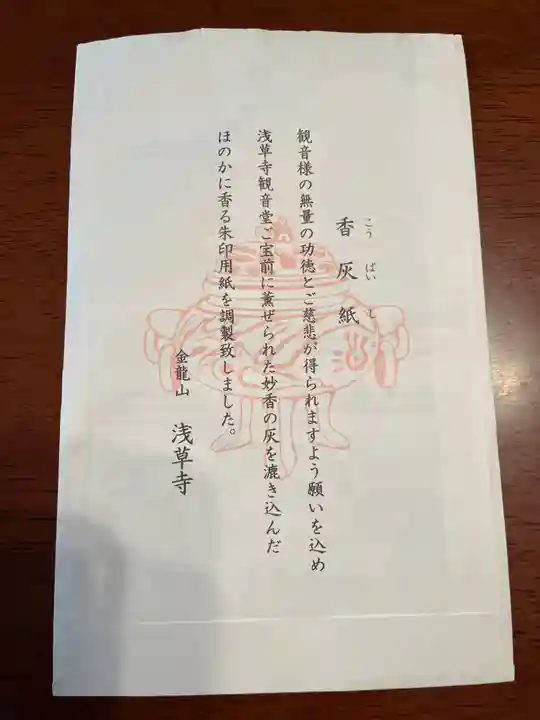 香灰紙
こうばいし
観音様の無量の功徳とご慈悲が得られますよう願いを込め
浅草寺観音堂ご宝前に薫ぜられた妙香の灰を漉き込んだ
ほのかに香る朱印用紙を調製致しました。
金龍山 浅草寺